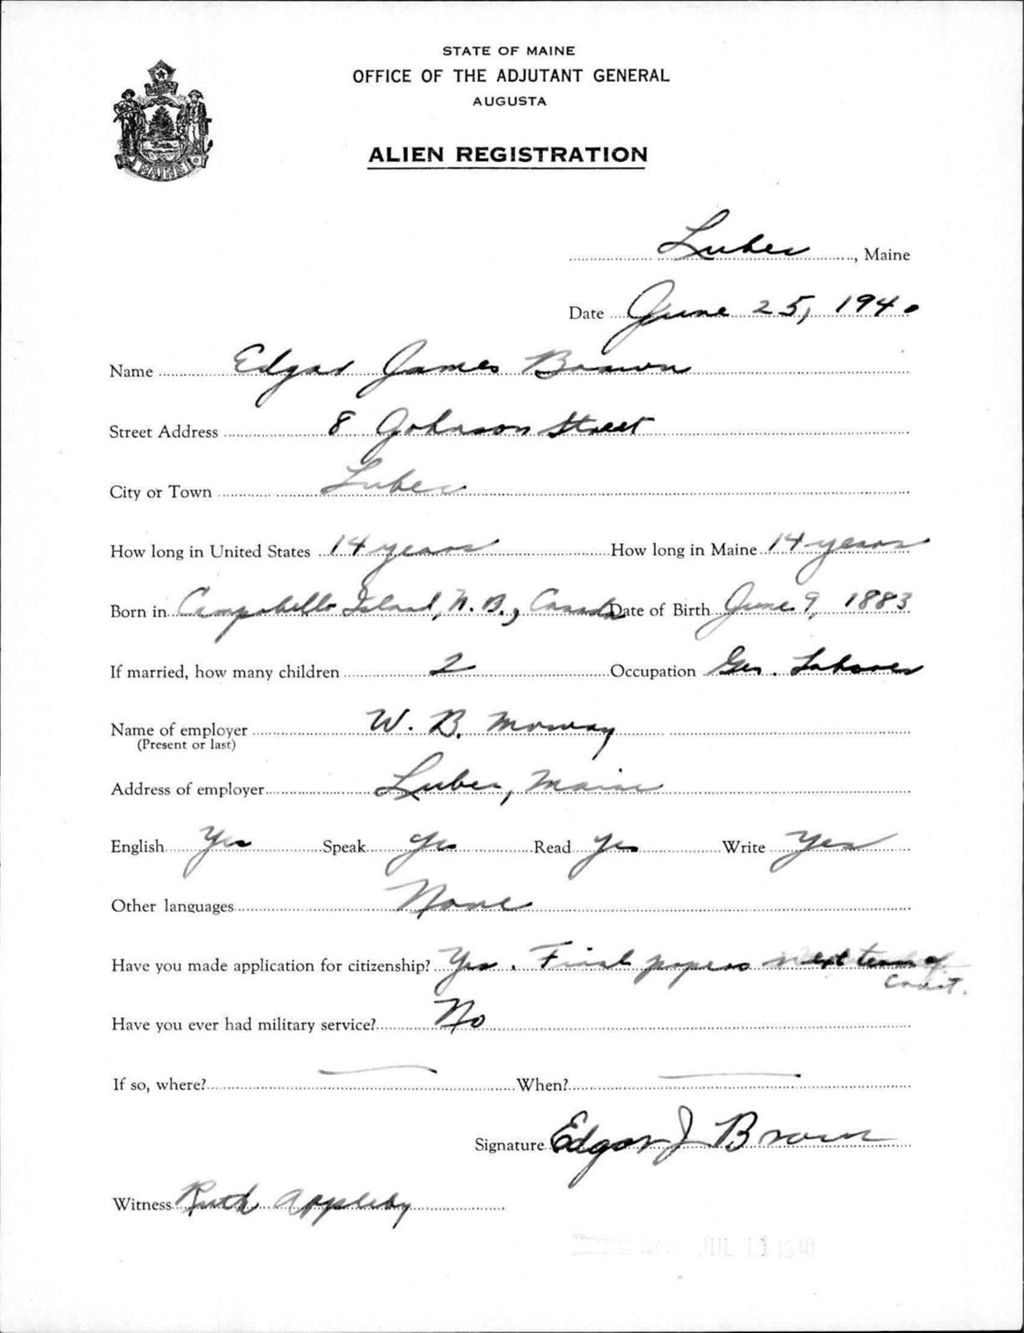 STATE OF MAINE
OFFICE OF THE ADJUTANT GENERAL
AUGUSTA
ALIEN REGISTRATION
MAINE
Lubec, Maine
Date June 25, 1940
Name Edgar James Brown
Street Address 8 Johnson Street
City or Town Lubec
How long in United States 14 years How long in Maine 14 years
Born in Campobello Island, N. B., Canada Date of Birth June 9, 1883
If married, how many children 2 Occupation Gen. Laborer
Name of employer W. B. Mowry
(Present or last)
Address of employer Lubec, Maine
English Yes Speak Yes Read Yes Write Yes
Other languages None
Have you made application for citizenship? Yes. Final papers next term of
Court.
Have you ever had military service? No
If so, where? — When? —
Signature Edgar J Brown
Witness Ruth Appleby
JUL 11 1940